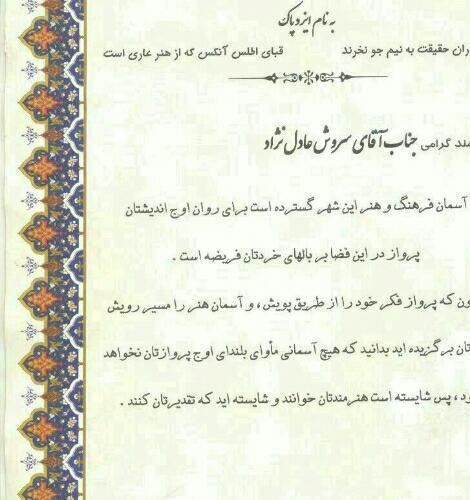 به نام ایزد پاک
ران حقیقت به نیم جو نخرند قبای اطلس آنکس که از هنر عاری است
گرامی جناب آقای سروش عادل نژاد
آسمان فرهنگ و هنر این شهر گسترده است برای روان اوج اندیشتان
پرواز در این فضا بر بالهای خردتان فریضه است .
که پرواز فکر خود را از طریق پویش ، و آسمان هنر را مسیر رویش
برگزیده اید بدانید که هیچ آسمانی مأوای بلندای اوج پروازتان نخواهد
پس شایسته است هنرمندتان خوانند و شایسته اید که تقدیرتان کنند .